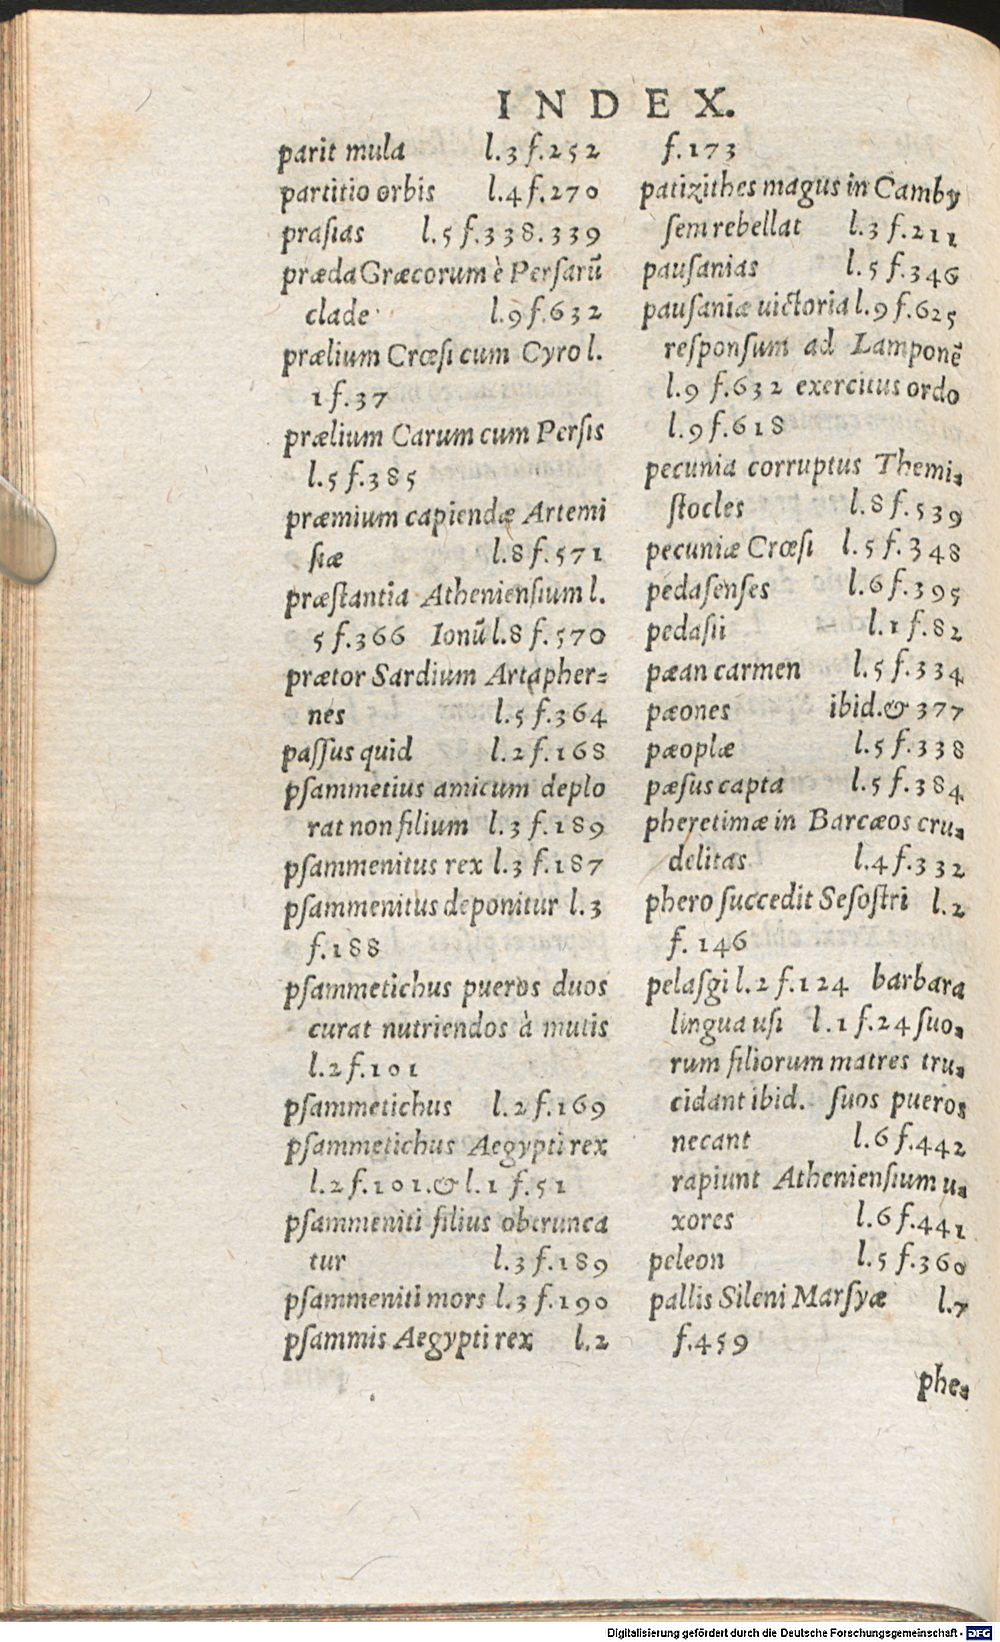 INDEX.
parit mula l.3 f.252
partitio orbis l.4 f.270
praſias l.5 f.338.339
præda Græcorum è Perſarū
clade l.9 f.632
prælium Crœſi cum Cyro l.
1 f.37
prælium Carum cum Perſis
l.5 f.385
præmium capiendæ Artemi
ſiæ l.8 f.571
præſtantia Athenienſium l.
5 f.366 Ionū l.8 f.570
prætor Sardium Artapher-
nes l.5 f.364
paſſus quid l.2 f.168
pſammetius amicum deplo
rat non filium l.3 f.189
pſammenitus rex l.3 f.187
pſammenitus deponitur l.3
f.188
pſammetichus pueros duos
curat nutriendos à mutis
l.2 f.101
pſammetichus l.2 f.169
pſammetichus Aegypti rex
l.2 f.101.& l.1 f.51
pſammeniti filius obtrunca
tur l.3 f.189
pſammeniti mors l.3 f.190
pſammis Aegypti rex l.2
f.173
patizithes magus in Camby
ſem rebellat l.3 f.211
pauſanias l.5 f.346
pauſaniæ uictoria l.9 f.625
reſponſum ad Lamponē
l.9 f.632 exercitus ordo
l.9 f.618
pecunia corruptus Themi-
ſtocles l.8 f.539
pecuniæ Crœſi l.5 f.348
pedaſenſes l.6 f.395
pedaſii l.1 f.82
pæan carmen l.5 f.334
pæones ibid.& 377
pæoplæ l.5 f.338
pæſus capta l.5 f.384
pheretimæ in Barcæos cru-
delitas l.4 f.332
phero ſuccedit Seſoſtri l.2
f. 146
pelaſgi l.2 f.124 barbara
lingua uſi l.1 f.24 ſuo-
rum filiorum matres tru-
cidant ibid. ſuos pueros
necant l.6 f.442
rapiunt Athenienſium u-
xores l.6 f.441
peleon l.5 f.360
pallis Sileni Marſyæ l.7
f.459
phe-
Digitalisierung gefördert durch die Deutsche Forschungsgemeinschaft - DFG